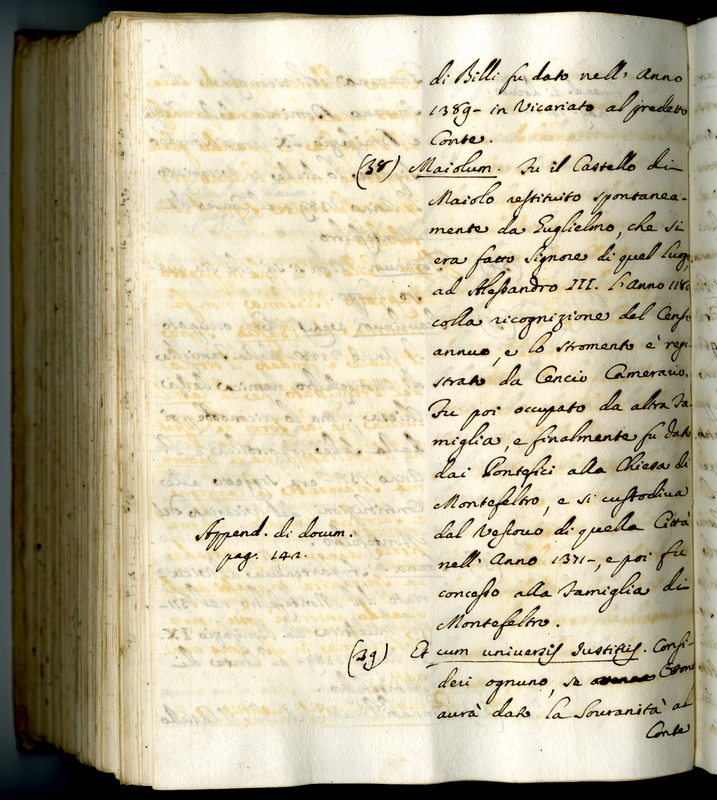 di Billi fu dato nell' Anno
1389 - in Vicariato al predetto
Conte.
(38) Maiolum. Fu il Castello di
Maiolo restituito spontanea-
mente da Guglielmo, che si
era fatto Signore di quel luogo,
ad Alessandro III. l'anno 118
colla ricognizione del Censo
annuo, e lo stromento è regi-
strato da Cencio Camerario.
Fu poi occupato da altra Fa-
miglia, e finalmente fu dato
dai Pontefici alla Chiesa di
Montefeltro, e si custodiva
dal Vescovo di quella Città
nell' Anno 1371 -, e poi fu
concesso alla Famiglia di
Montefeltro.
Append. di docum.
pag. 142.
(39) Et cum universis Iustitiis. Consi-
deri ognuno, se Ottone
aurà dato la Souranità al
Conte